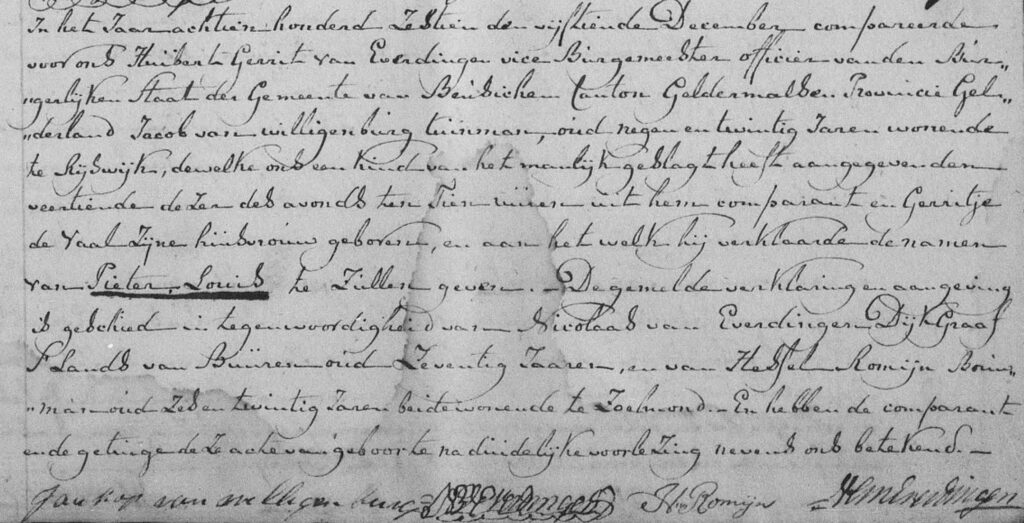 In het Jaar achtien honderd Zestien den vijftiende December, compareerde
voor ons Huibert Gerrit van Everdingen vice Burgemeester officier van den Bur„
„gerlijken Staat der Gemeente van Beusichem Canton Geldermalsen Provincie Gel„
„derland Jacob van willigenburg tuinman, oud negen en twintig Jaren wonende
te Rijswijk, dewelke ons een kind van het manlijk geslagt heeft aangegeven den
veertiende dezer des avonds ten Tien uuren uit hem comparant en Gerritje
de Vaal Zijne huisvrouw geboren, en aan het welk hij verklaarde de namen
van Pieter, Louis te Zullen geven. - De gemelde verklaring en aangeving
is geschied in tegenwoordigheid van Nicolaas van Everdingen DijkGraaf
S Lands van Buuren oud Zeventig Jaaren, en van Hessel Romijn Bouw„
„man oud Zes en twintig Jaren beide wonende te Zoelmond. - En hebben de comparant
en de getuige deze acte van geboorte na duidelijke voorlezing nevens ons betekend. -
Jaakop van willigenburg NVEverdingen H. Romijn HGvanEverdingen